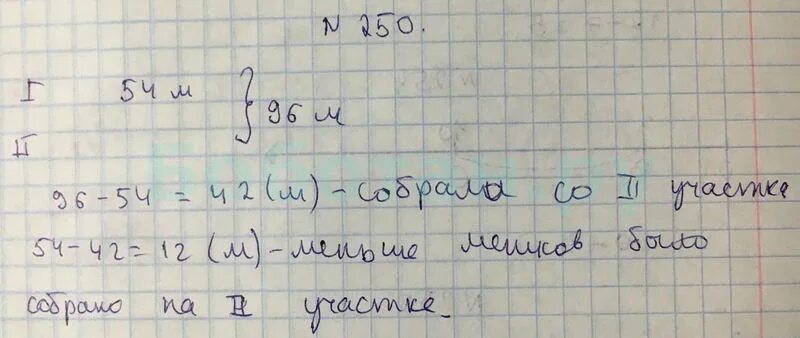 N 250.
I 54 м } 96 м
II
96-54 = 42 (м) - собрали со II участка
54-42 = 12 (м) - меньше мешков было
собрано на II участке.